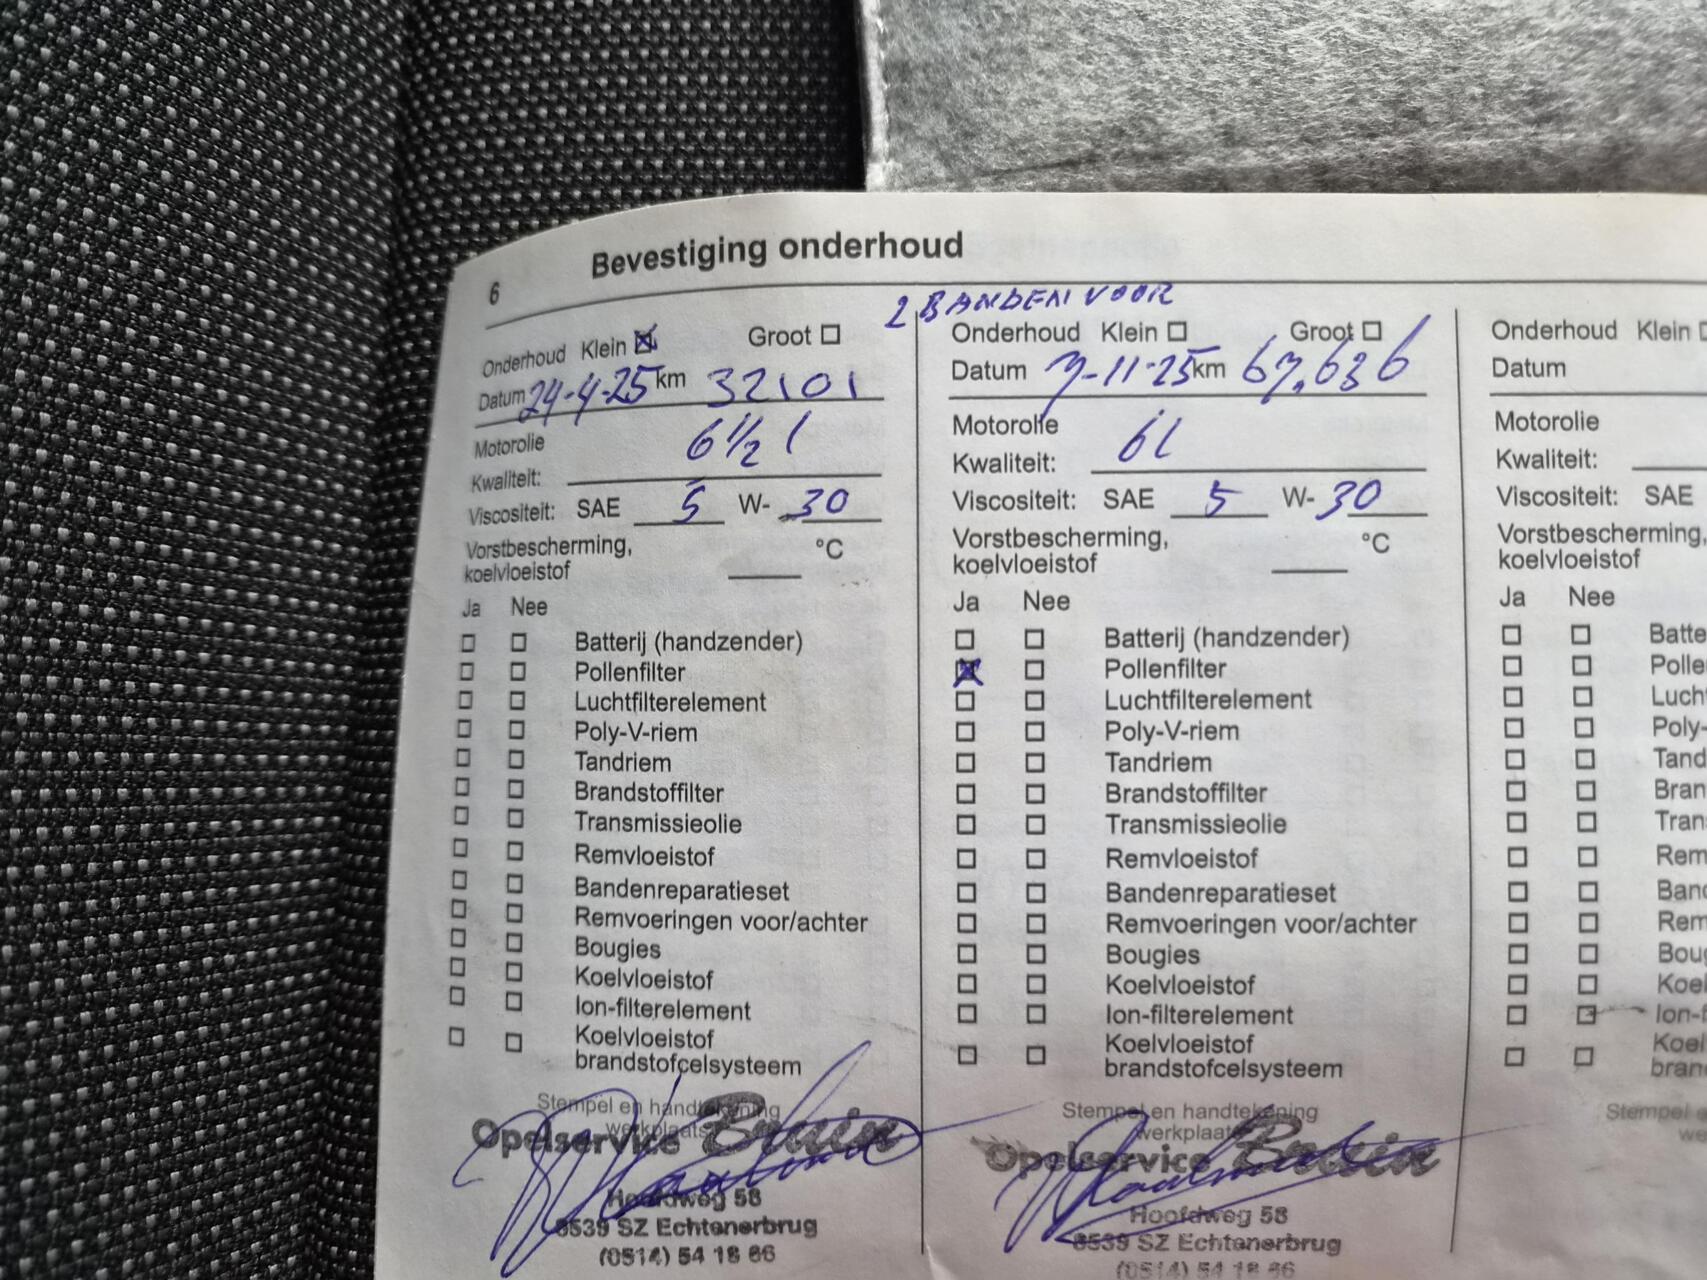 6 Bevestiging onderhoud
2 BANDEN VOOR
Onderhoud Klein Groot
Datum 24-4-25 km 32101
Motorolie 6 1/2 l
Kwaliteit:
Viscositeit: SAE 5 W- 30
Vorstbescherming, °C
koelvloeistof
Ja Nee
Batterij (handzender)
Pollenfilter
Luchtfilterelement
Poly-V-riem
Tandriem
Brandstoffilter
Transmissieolie
Remvloeistof
Bandenreparatieset
Remvoeringen voor/achter
Bougies
Koelvloeistof
Ion-filterelement
Koelvloeistof
brandstofcelsysteem
Stempel en handtekening
werkplaats
Opelservice Bruin
Hoofdweg 58
8539 SZ Echtenerbrug
(0514) 54 18 66
Onderhoud Klein Groot
Datum 7-11-25 km 67.636
Motorolie 6l
Kwaliteit:
Viscositeit: SAE 5 W- 30
Vorstbescherming, °C
koelvloeistof
Ja Nee
Batterij (handzender)
Pollenfilter
Luchtfilterelement
Poly-V-riem
Tandriem
Brandstoffilter
Transmissieolie
Remvloeistof
Bandenreparatieset
Remvoeringen voor/achter
Bougies
Koelvloeistof
Ion-filterelement
Koelvloeistof
brandstofcelsysteem
Stempel en handtekening
werkplaats
Opelservice Bruin
Hoofdweg 58
8539 SZ Echtenerbrug
(0514) 54 18 66
Onderhoud Klein
Datum
Motorolie
Kwaliteit:
Viscositeit: SAE
Vorstbescherming,
koelvloeistof
Ja Nee
Batte
Polle
Lucht
Poly-
Tand
Bran
Tran
Rem
Band
Rem
Boug
Koel
Ion-f
Koel
bran
Stempel e
we